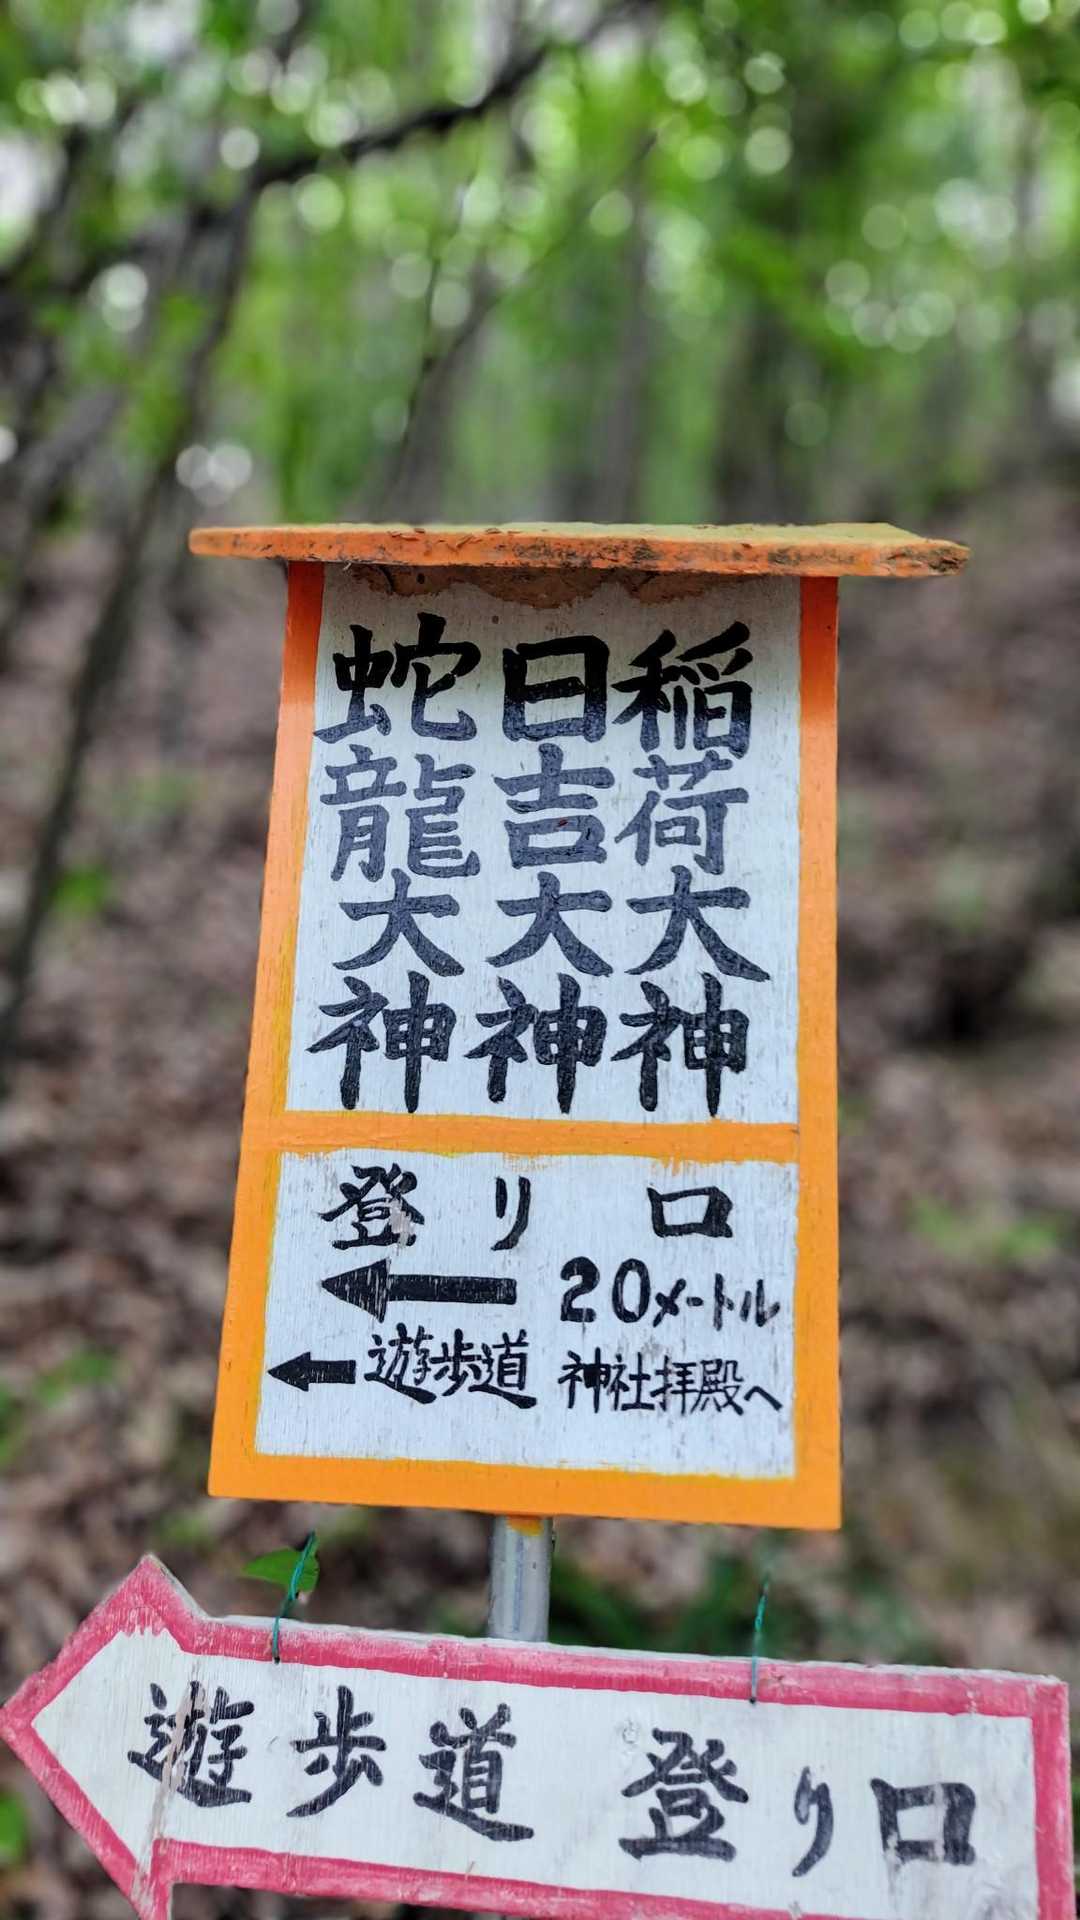 稲荷大神
日吉大神
蛇龍大神
登り口
20メートル
遊歩道 神社拝殿へ
遊歩道 登り口